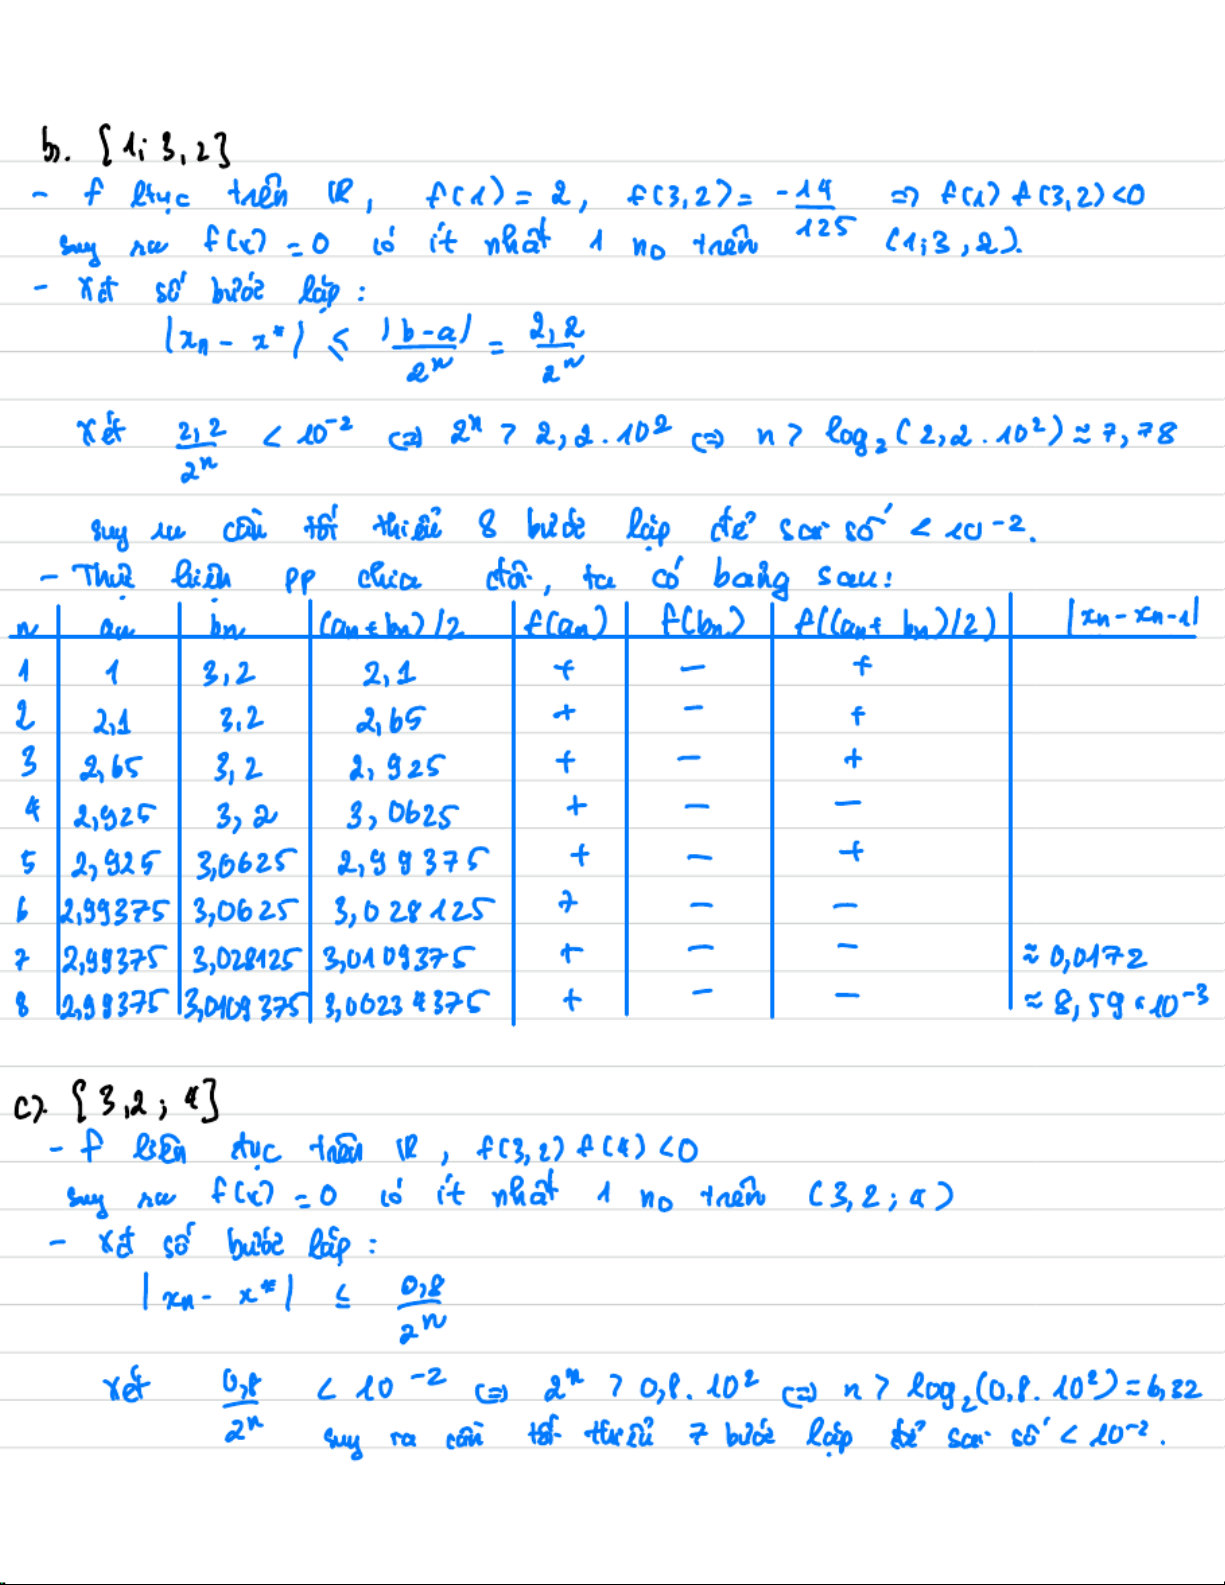 b. [1; 3,2]
- f ltục trên ℝ, f(1) = 2, f(3,2) = -14/125 ⇒ f(1) f(3,2) < 0
suy ra f(x) = 0 có ít nhất 1 no trên (1; 3,2).
- Xét số bước lặp:
|xn - x*| ≤ |b-a|/2^n = 2,2/2^n
Xét 2,2/2^n < 10^-2 ⇔ 2^n > 2,2.10^2 ⇔ n > log2(2,2.10^2) ≈ 7,78
suy ra cần tối thiểu 8 bước lặp để sai số < 10^-2.
- Thực hiện pp chia đôi, ta có bảng sau:
n | an | bn | (an + bn)/2 | f(an) | f(bn) | f((an + bn)/2) | |xn - xn-1|
1 | 1 | 3,2 | 2,1 | + | - | + |
2 | 2,1 | 3,2 | 2,65 | + | - | + |
3 | 2,65 | 3,2 | 2,925 | + | - | + |
4 | 2,925 | 3,2 | 3,0625 | + | - | - |
5 | 2,925 | 3,0625 | 2,99375 | + | - | + |
6 | 2,99375 | 3,0625 | 3,028125 | + | - | - |
7 | 2,99375 | 3,028125 | 3,0109375 | + | - | - | ≈ 0,0172
8 | 2,99375 | 3,0109375 | 3,00234375 | + | - | - | ≈ 8,59.10^-3
c). [3,2; 4]
- f liên tục trên ℝ, f(3,2) f(4) < 0
suy ra f(x) = 0 có ít nhất 1 no trên (3,2; 4)
- Xét số bước lặp:
|xn - x*| ≤ 0,8/2^n
Xét 0,8/2^n < 10^-2 ⇔ 2^n > 0,8.10^2 ⇔ n > log2(0,8.10^2) = 6,32
suy ra cần tối thiểu 7 bước lặp để sai số < 10^-2.